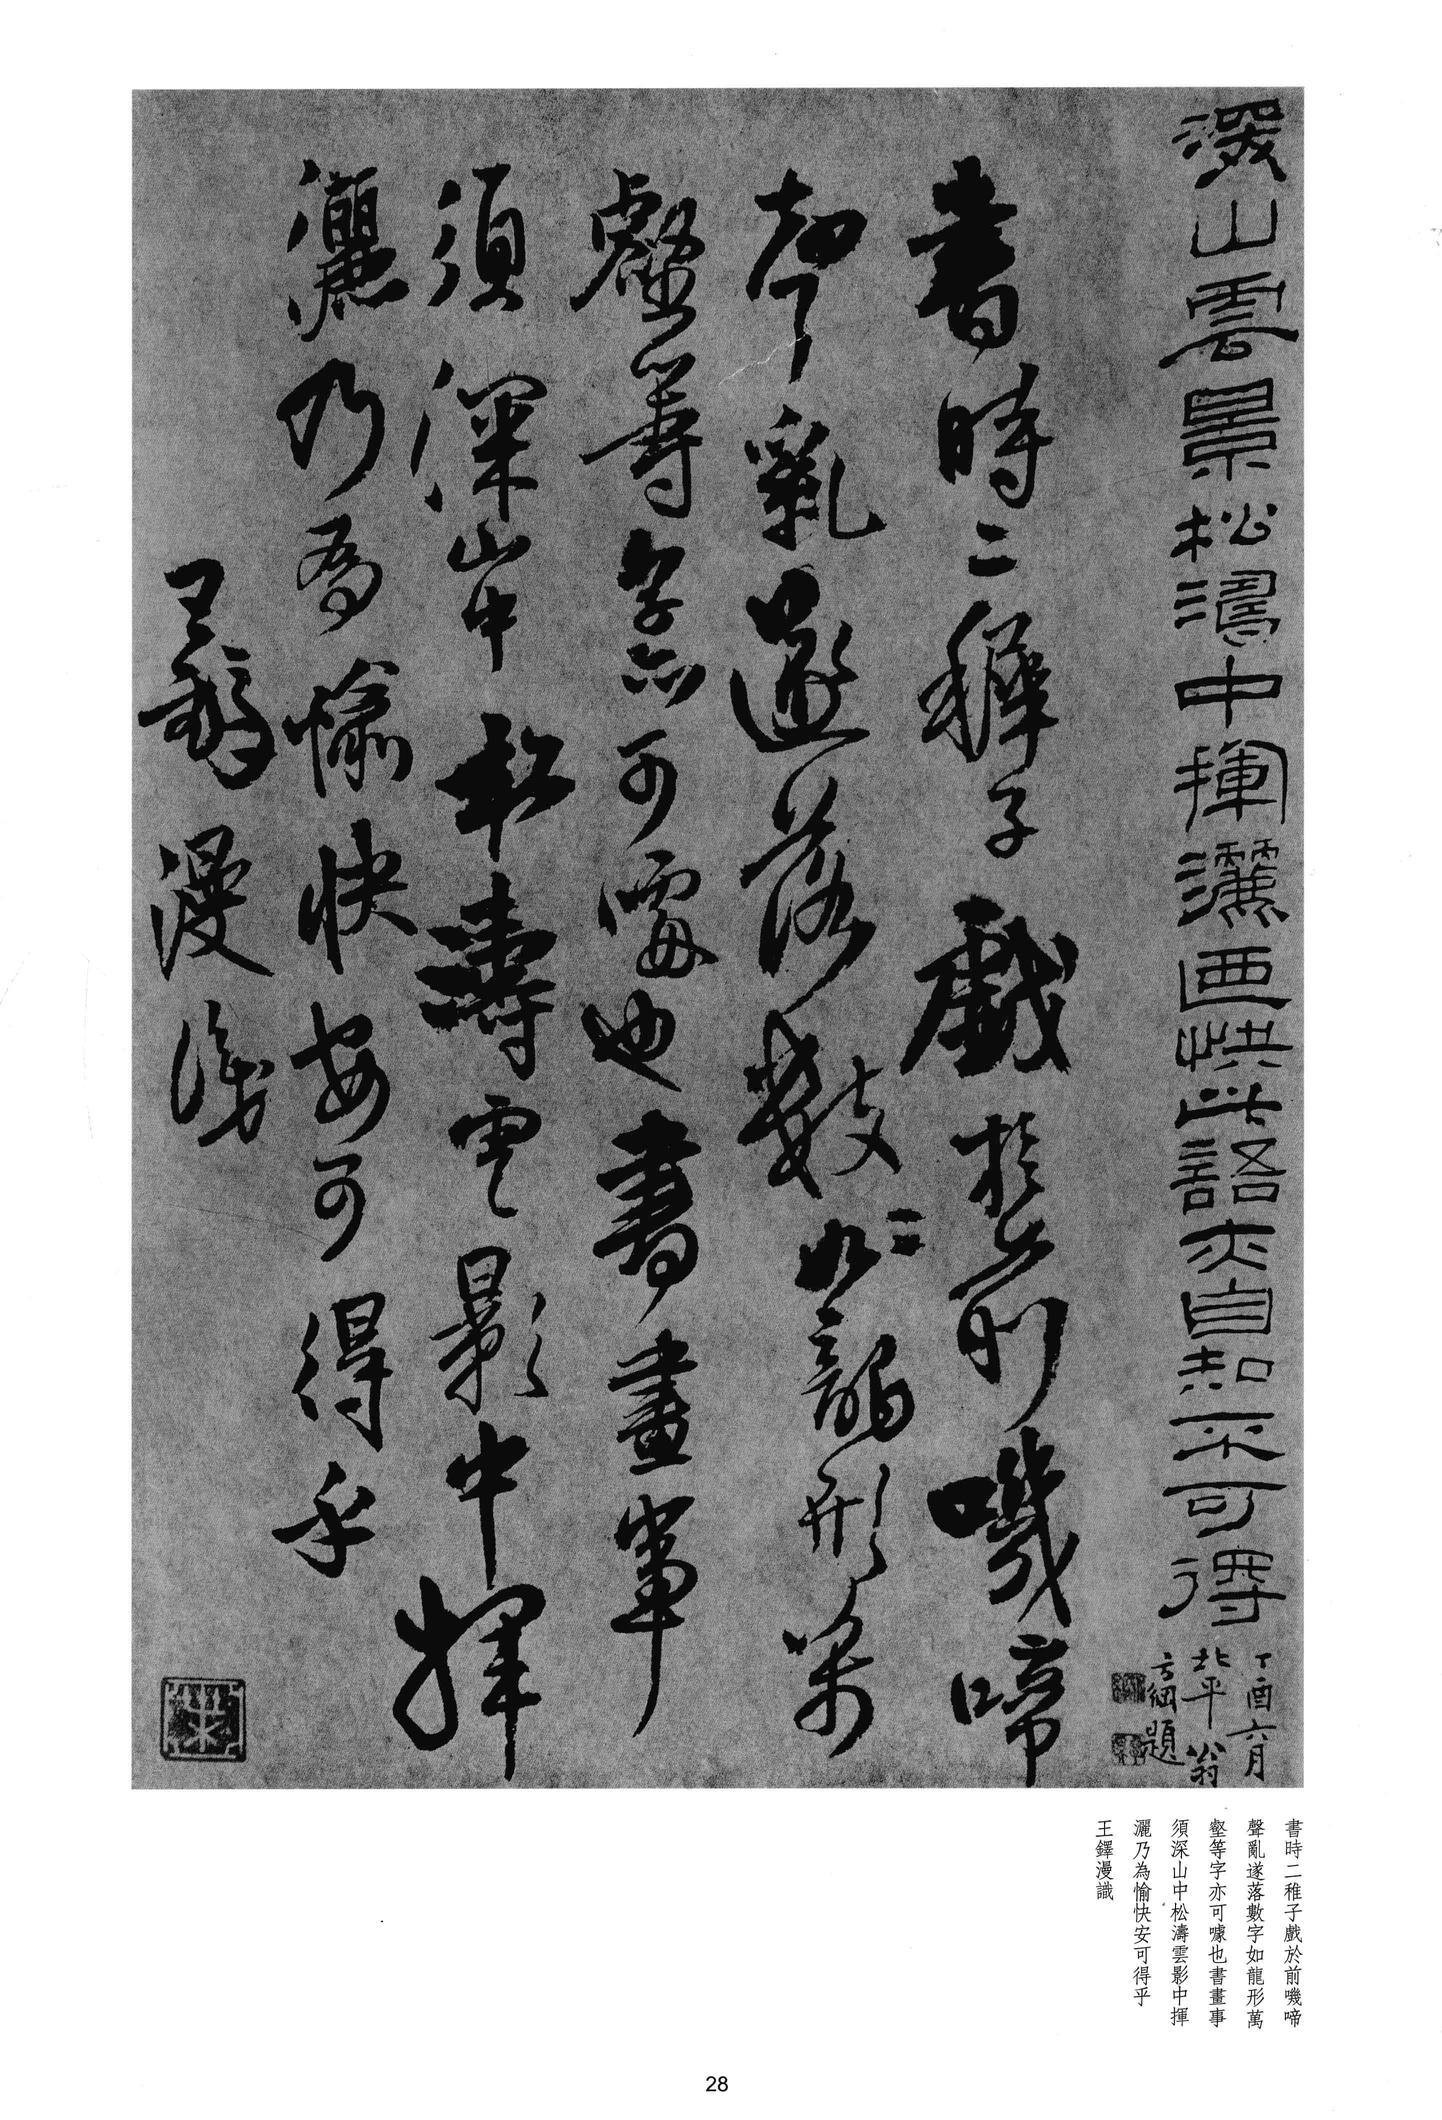 深山雲景松濤中揮灑迺快此語亦自知不可得
丁酉六月
北平翁
方綱題
書時二稚子戲於前嘰啼
聲亂遂落數二如龍形萬
壑等字亦可噱也書畫事
須深山中松濤雲影中揮
灑乃為愉快安可得乎
王鐸漫識
書時二稚子戲於前嘰啼
聲亂遂落數字如龍形萬
壑等字亦可噱也書畫事
須深山中松濤雲影中揮
灑乃為愉快安可得乎
王鐸漫識
28